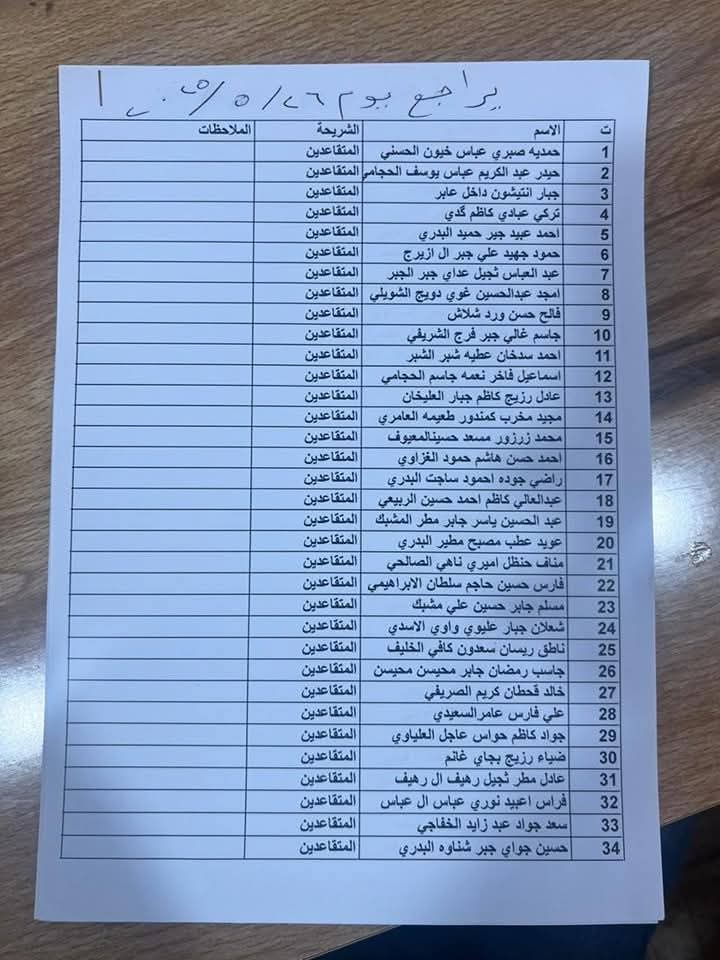 يراجع يوم ٢٦/٥/٢٠٢٥
ت الاسم الشريحة الملاحظات
1 حمديه صبري عباس خيون الحسني المتقاعدين
2 حيدر عبد الكريم عباس يوسف الحجامي المتقاعدين
3 جبار انتيشون داخل عابر المتقاعدين
4 تركي عبادي كاظم گدي المتقاعدين
5 احمد عبيد جبر حميد البدري المتقاعدين
6 حمود جهيد علي جبر ال ازيرج المتقاعدين
7 عبد العباس ثجيل عداي جبر الجبر المتقاعدين
8 امجد عبدالحسين غوي دويج الشويلي المتقاعدين
9 فالح حسن ورد شلاش المتقاعدين
10 جاسم غالي جبر فرج الشريفي المتقاعدين
11 احمد سدخان عطيه شبر الشبر المتقاعدين
12 اسماعيل فاخر نعمه جاسم الحجامي المتقاعدين
13 عادل رزيج كاظم جبار العليخان المتقاعدين
14 مجيد مخرب كمندور طعيمه العامري المتقاعدين
15 محمد زرزور مسعد حسينالمعيوف المتقاعدين
16 احمد حسن هاشم حمود الغزاوي المتقاعدين
17 راضي جوده احمود ساجت البدري المتقاعدين
18 عبدالعالي كاظم احمد حسين الربيعي المتقاعدين
19 عبد الحسين ياسر جابر مطر المشبك المتقاعدين
20 عويد عطب مصبح مطير البدري المتقاعدين
21 مناف حنظل اميري ناهي الصالحي المتقاعدين
22 فارس حسين حاجم سلطان الابراهيمي المتقاعدين
23 مسلم جابر حسين علي مشبك المتقاعدين
24 شعلان جبار عليوي واوي الاسدي المتقاعدين
25 ناطق ريسان سعدون كافي الخليف المتقاعدين
26 جاسب رمضان جابر محيسن محيسن المتقاعدين
27 خالد قحطان كريم الصريفي المتقاعدين
28 علي فارس عامرالسعيدي المتقاعدين
29 جواد كاظم حواس عاجل العلياوي المتقاعدين
30 ضياء رزيج بجاي غانم المتقاعدين
31 عادل مطر ثجيل رهيف ال رهيف المتقاعدين
32 فراس اعبيد نوري عباس ال عباس المتقاعدين
33 سعد جواد عبد زايد الخفاجي المتقاعدين
34 حسين جواي جبر شناوه البدري المتقاعدين